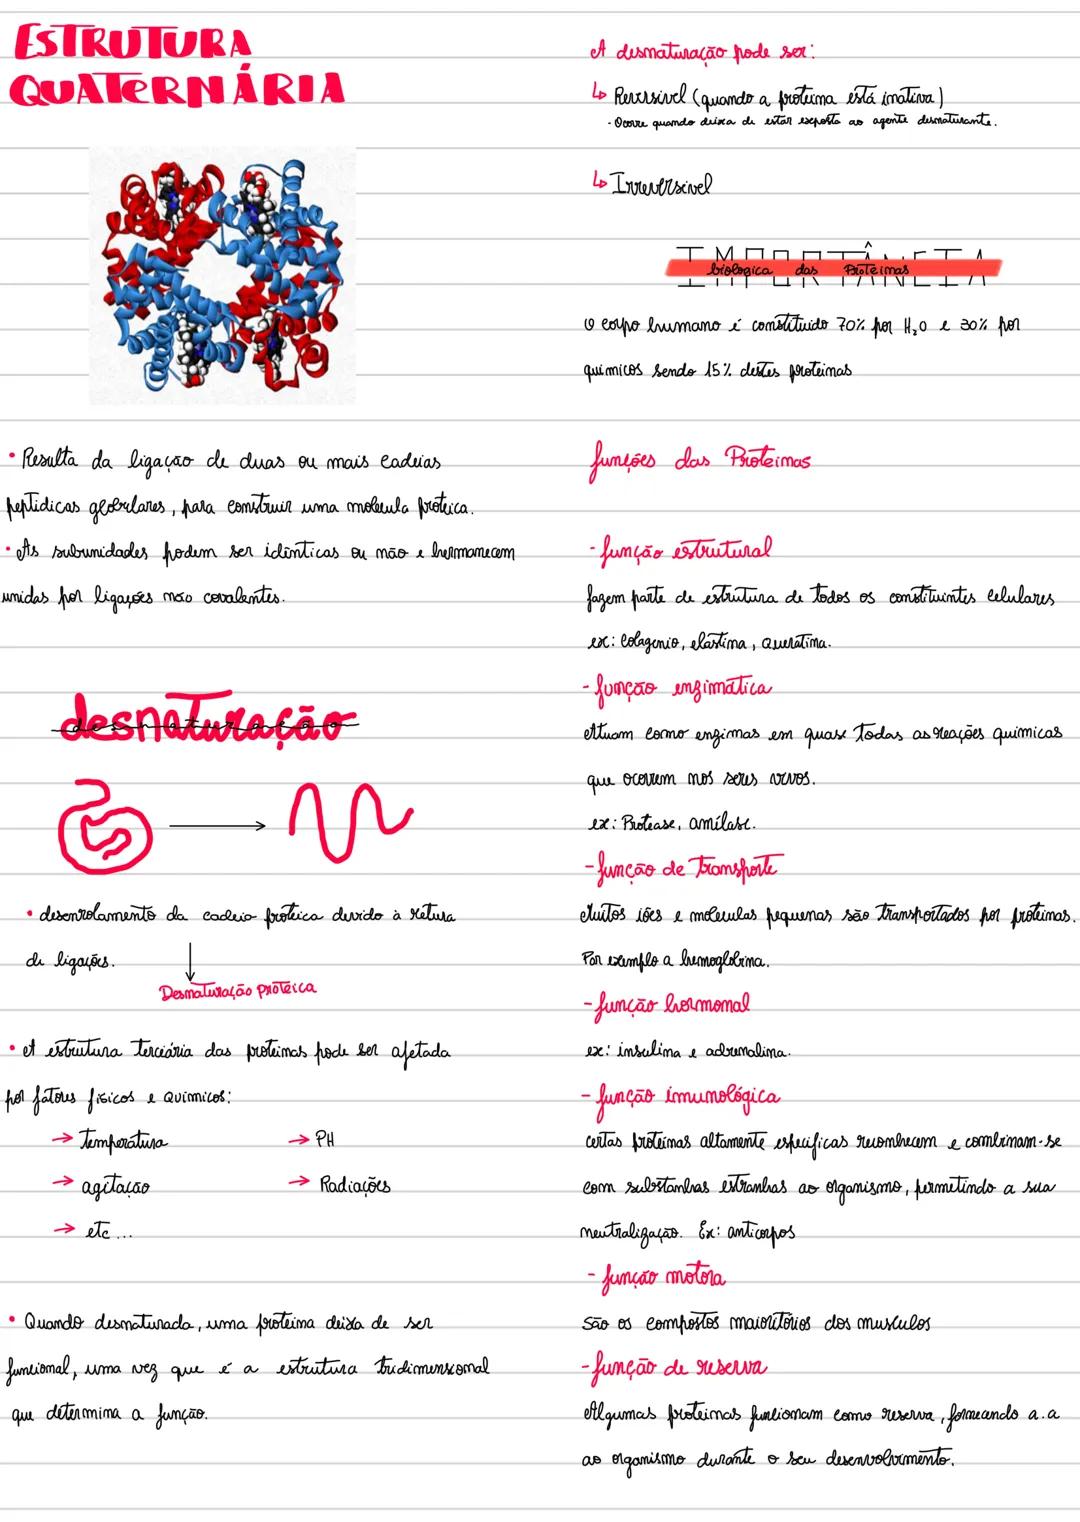 ESTRUTURA
QUATERNÁRIA
• Resulta da ligação de duas ou mais cadeias
peptidicas globulares, para construir uma molecula proteica.
• As subunidades podem ser idênticas ou não e permanecem
unidas por ligações não covalentes.
desnaturação
• desenrolamento da cadeia proteica devido à retura
de ligações.
Desnaturação proteica
• A estrutura terciária das proteinas pode ser afetada
por fatores fisicos e quimicos:
→ temperatura → PH
→ agitação → Radiações
→ etc ...
• Quando desnaturada, uma proteina deixa de ser
funcional, uma vez que é a estrutura tridimensional
que determina a função.
A desnaturação pode ser:
↳ Reversivel (quando a proteina está inativa)
- Ocorre quando deixa de estar exposta ao agente desnaturante.
↳ Irreversivel
IMPORTÂNCIA
biologica das Proteinas
O corpo humano é constituido 70% por H₂O e 30% por
quimicos sendo 15% destes proteinas
funções das Proteinas
- função estrutural
fazem parte de estrutura de todos os constituintes celulares
ex: Colagenio, elastina, Queratina.
- função enzimatica
Atuam como enzimas em quase todas as reações quimicas
que ocorrem nos seres vivos.
ex: Protease, amilase.
- função de transporte
Muitos iões e moleculas pequenas são transportados por proteinas.
Por exemplo a hemoglobina.
- função hormonal
ex: insulina e adrenalina.
- função imunológica
certas proteinas altamente especificas reconhecem e combinam-se
com substanhas estranhas ao organismo, permitindo a sua
neutralização. Ex: anticorpos
- função motora
São os compostos maioritários dos musculos
- função de reserva
Algumas proteinas funcionam como reserva, fornecendo a.a
ao organismo durante o seu desenvolvimento.